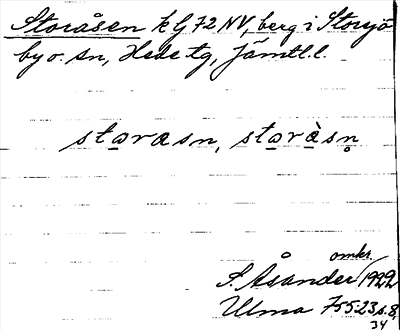 Storåsen k G 72 NV, berg i Storsjö
by o. sn, Hede tg, Jämtl. l.
storasn, storàsn̥
omkr.
S. Åsander 1922
Ulma 755:23 s. 8,
34